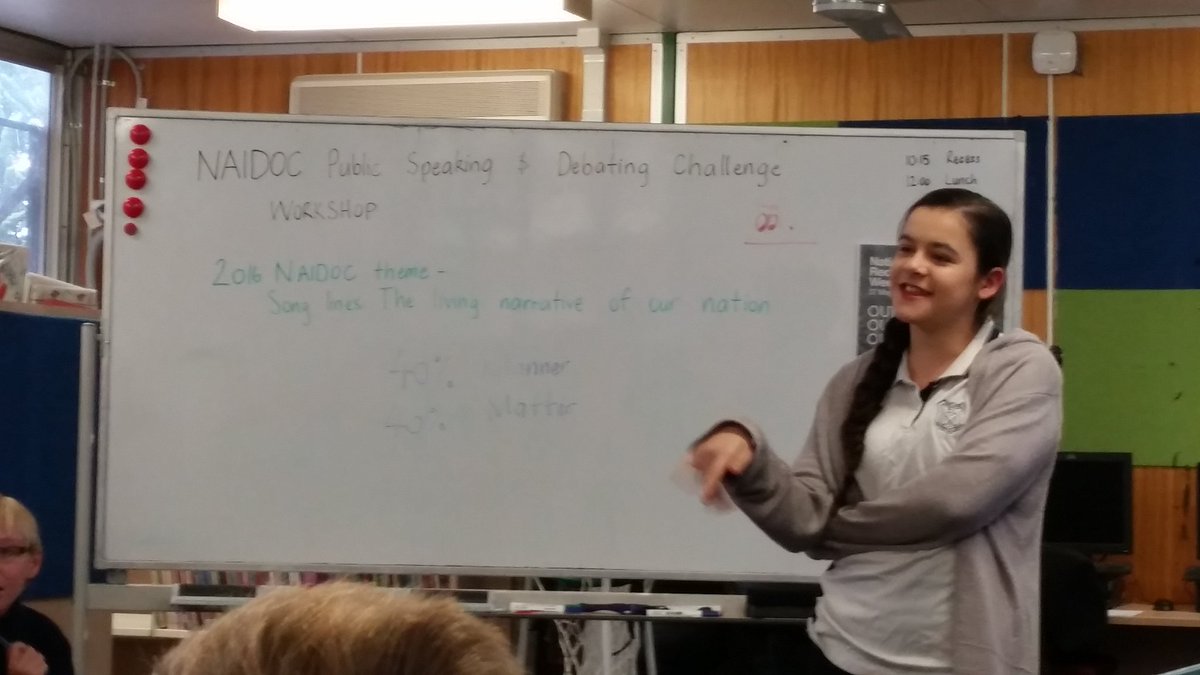 NAIDOC Public Speaking & Debating Challenge
WORKSHOP
10:15 Recess
12:00 Lunch
2016 NAIDOC theme -
Song lines The living narrative of our nation
40%
40% Matter
Nati
Rec
We
OU
OU
O